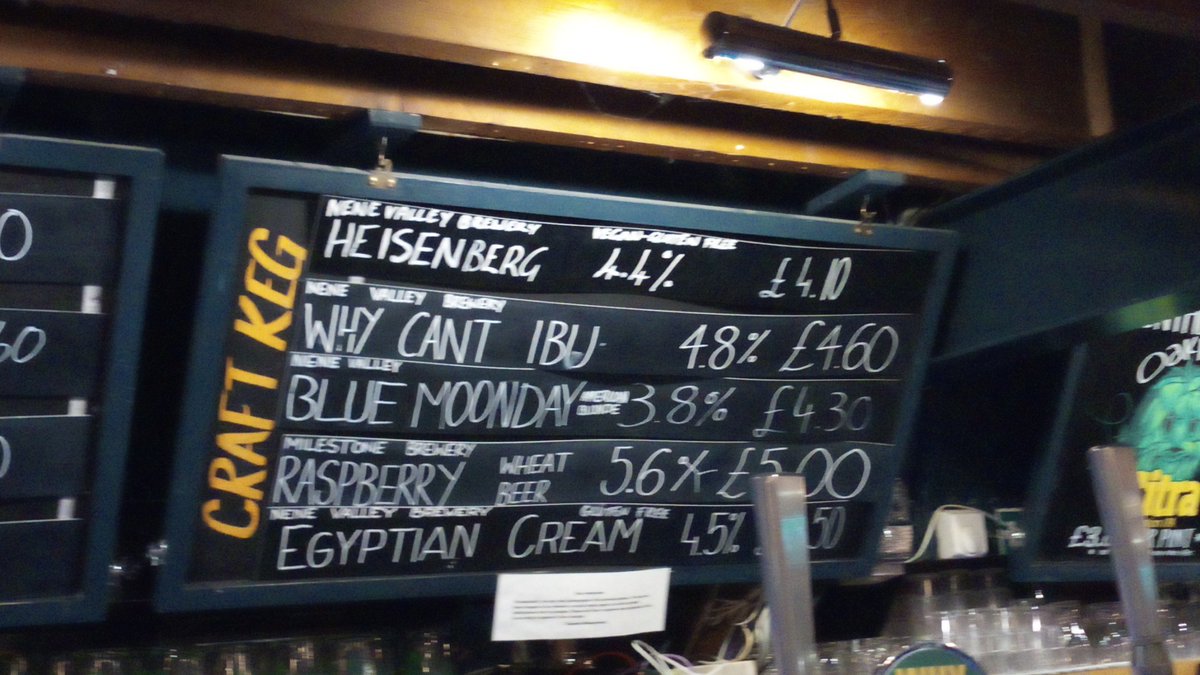 CRAFT KEG
NENE VALLEY BREWERY
HEISENBERG
VEGAN-GLUTEN FREE
4.4% £4.10
NENE VALLEY BREWERY
WHY CANT IBU 4.8% £4.60
NENE VALLEY
BLUE MOONDAY BLONDE 3.8% £4.30
MILESTONE BREWERY
RASPBERRY WHEAT BEER 5.6% £5.00
NENE VALLEY BREWERY GLUTEN FREE
EGYPTIAN CREAM 4.5% 50
0
60